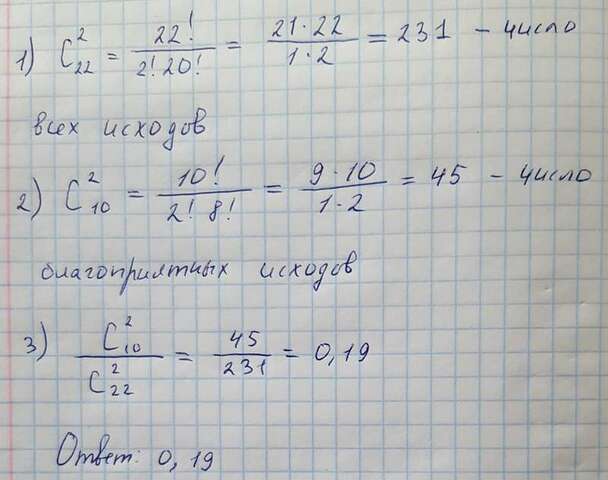 1) C²₂₂ = 22! / 2! 20! = 21 · 22 / 1 · 2 = 231 – число
всех исходов
2) C²₁₀ = 10! / 2! 8! = 9 · 10 / 1 · 2 = 45 – число
благоприятных исходов
3) C²₁₀ / C²₂₂ = 45 / 231 = 0,19
Ответ: 0,19